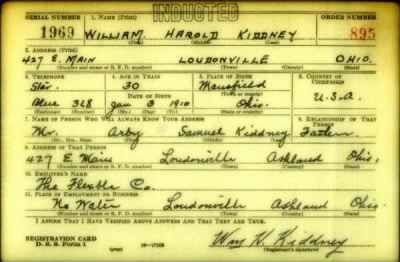 INDUCTED
SERIAL NUMBER 1. NAME (Print) ORDER NUMBER
1969 WILLIAM HAROLD KIDDNEY 895
(First) (Middle) (Last)
2. ADDRESS (Print)
427 E. MAIN LOUDONVILLE OHIO.
(Number and street or R. F. D. number) (Town) (County) (State)
3. TELEPHONE 4. AGE IN YEARS 5. PLACE OF BIRTH 6. COUNTRY OF CITIZENSHIP
30 Mansfield
DATE OF BIRTH (Town or county)
Blue 368 Jan 3 1910 Ohio. U.S.A
(Exchange) (Number) (Mo.) (Day) (Yr.) (State or country)
7. NAME OF PERSON WHO WILL ALWAYS KNOW YOUR ADDRESS 8. RELATIONSHIP OF THAT PERSON
Mr. Arby Samuel Kiddney Father
(Mr., Mrs., Miss) (First) (Middle) (Last)
9. ADDRESS OF THAT PERSON
427 E Main Loudonville Ashland Ohio.
(Number and street or R. F. D. number) (Town) (County) (State)
10. EMPLOYER'S NAME
The Flxible Co.
11. PLACE OF EMPLOYMENT OR BUSINESS
No Water Loudonville Ashland Ohio.
(Number and street or R. F. D. number) (Town) (County) (State)
I AFFIRM THAT I HAVE VERIFIED ABOVE ANSWERS AND THAT THEY ARE TRUE.
REGISTRATION CARD
D. S. S. Form 1 (over) 16—17105 Wm H. Kiddney
(Registrant's signature)